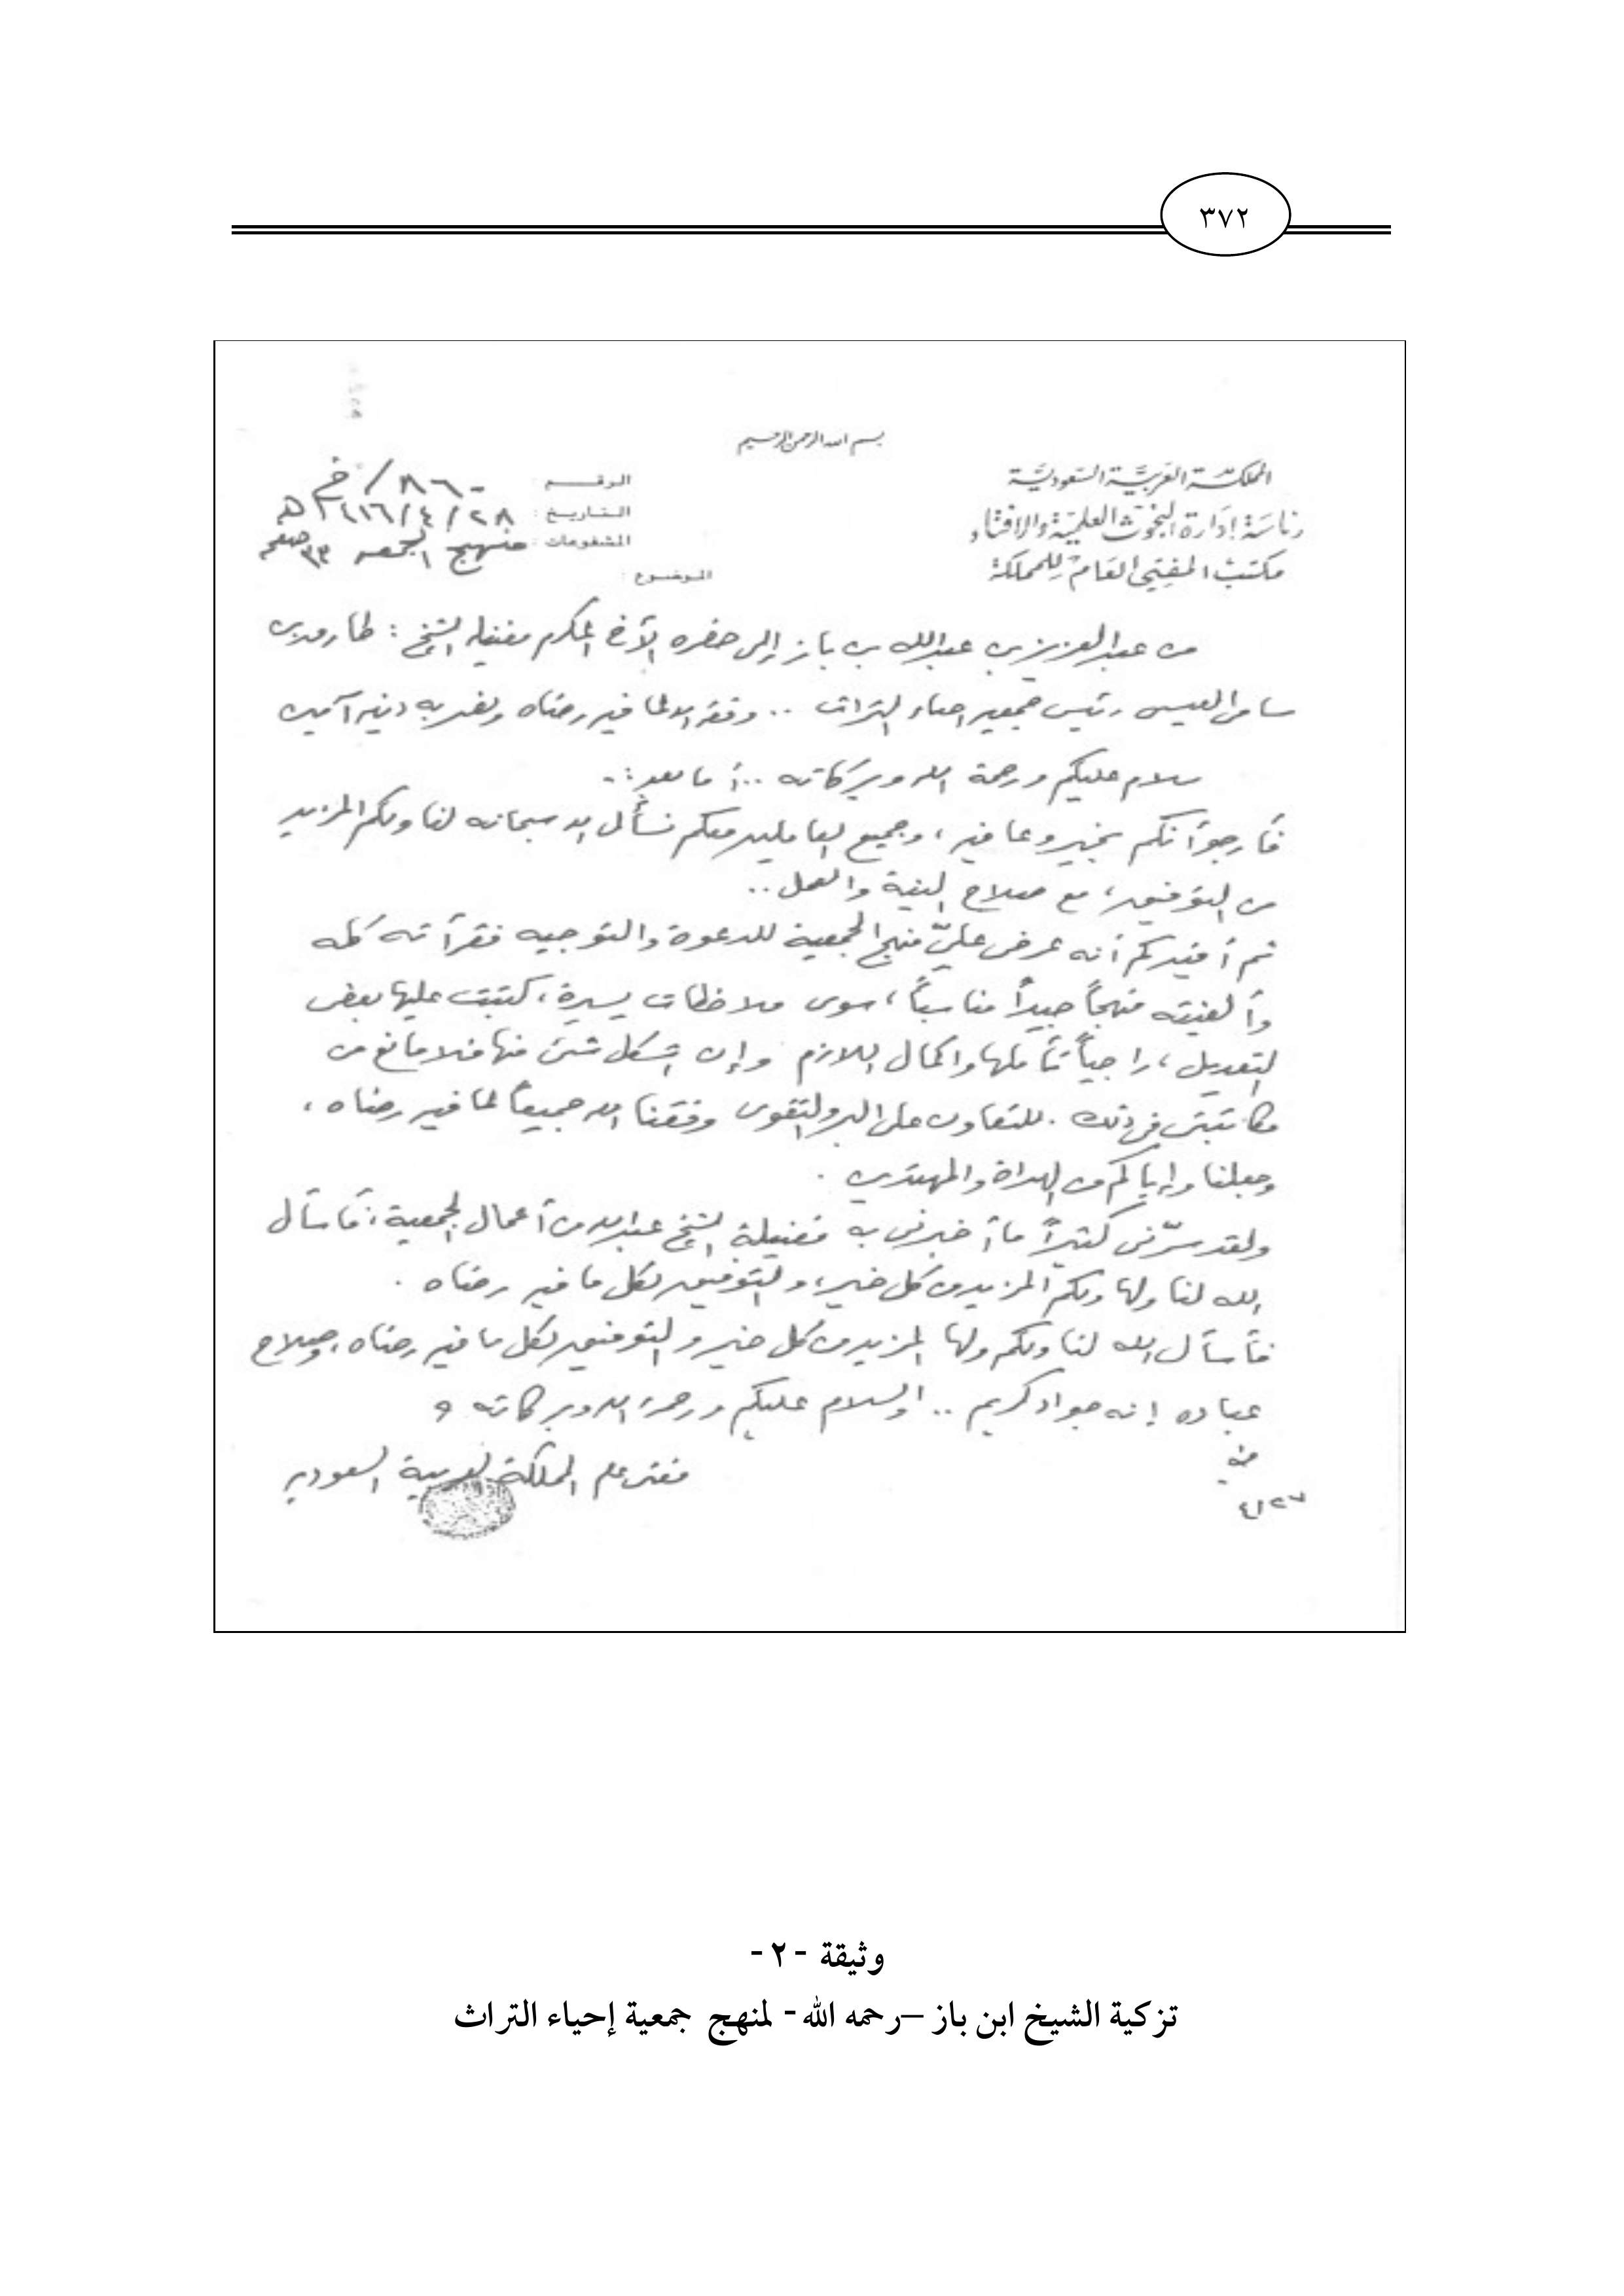 ٣٧٢
بسم الله الرحمن الرحيم
المملكة العربية السعودية
رئاسة إدارة البحوث العلمية والإفتاء
مكتب المفتي العام للمملكة
الرقم : ٨٦٠ / خ
التاريخ : ٢٨ / ٤ / ١٤١٦ هـ
المشفوعات : منهج الجمعية ٣٣ صفحة
الموضوع :
من عبدالعزيز بن عبدالله بن باز إلى حضرة الأخ المكرم فضيلة الشيخ : طارق بن
سامي العيسى رئيس جمعية احياء التراث .. وفقه الله لما فيه رضاه ونصر به دينه آمين
سلام عليكم ورحمة الله وبركاته .. أما بعد :-
فأرجو أنكم بخير وعافية ، وجميع العاملين معكم نسأل الله سبحانه لنا ولكم المزيد
من التوفيق ، مع صلاح النية والعمل ..
ثم أفيدكم أنه عرض عليّ منهج الجمعية للدعوة والتوجيه فقرأته كله
وألفيته منهجاً جيداً مناسباً ، سوى ملاحظات يسيرة ، كتبت عليها بعض
التعديل ، راجياً تأملها واكمال اللازم وإن اشكل شيء منها فلا مانع من
مكاتبتي في ذلك . للتعاون على البر والتقوى وفقنا الله جميعاً لما فيه رضاه ،
وجعلنا وإياكم من الهداة والمهتدين .
ولقد سرّني كثيراً ما أخبرني به فضيلة الشيخ عبدالله من أعمال الجمعية ، فأسأل
الله لنا ولها ولكم المزيد من كل خير ، والتوفيق لكل ما فيه رضاه .
فأسأل الله لنا ولكم ولها المزيد من كل خير والتوفيق لكل ما فيه رضاه ، وصلاح
عباده إنه جواد كريم .. والسلام عليكم ورحمة الله وبركاته
مفتي عام المملكة العربية السعودية
٤/٢٧
وثيقة -٢-
تزكية الشيخ ابن باز –رحمه الله- لمنهج جمعية إحياء التراث